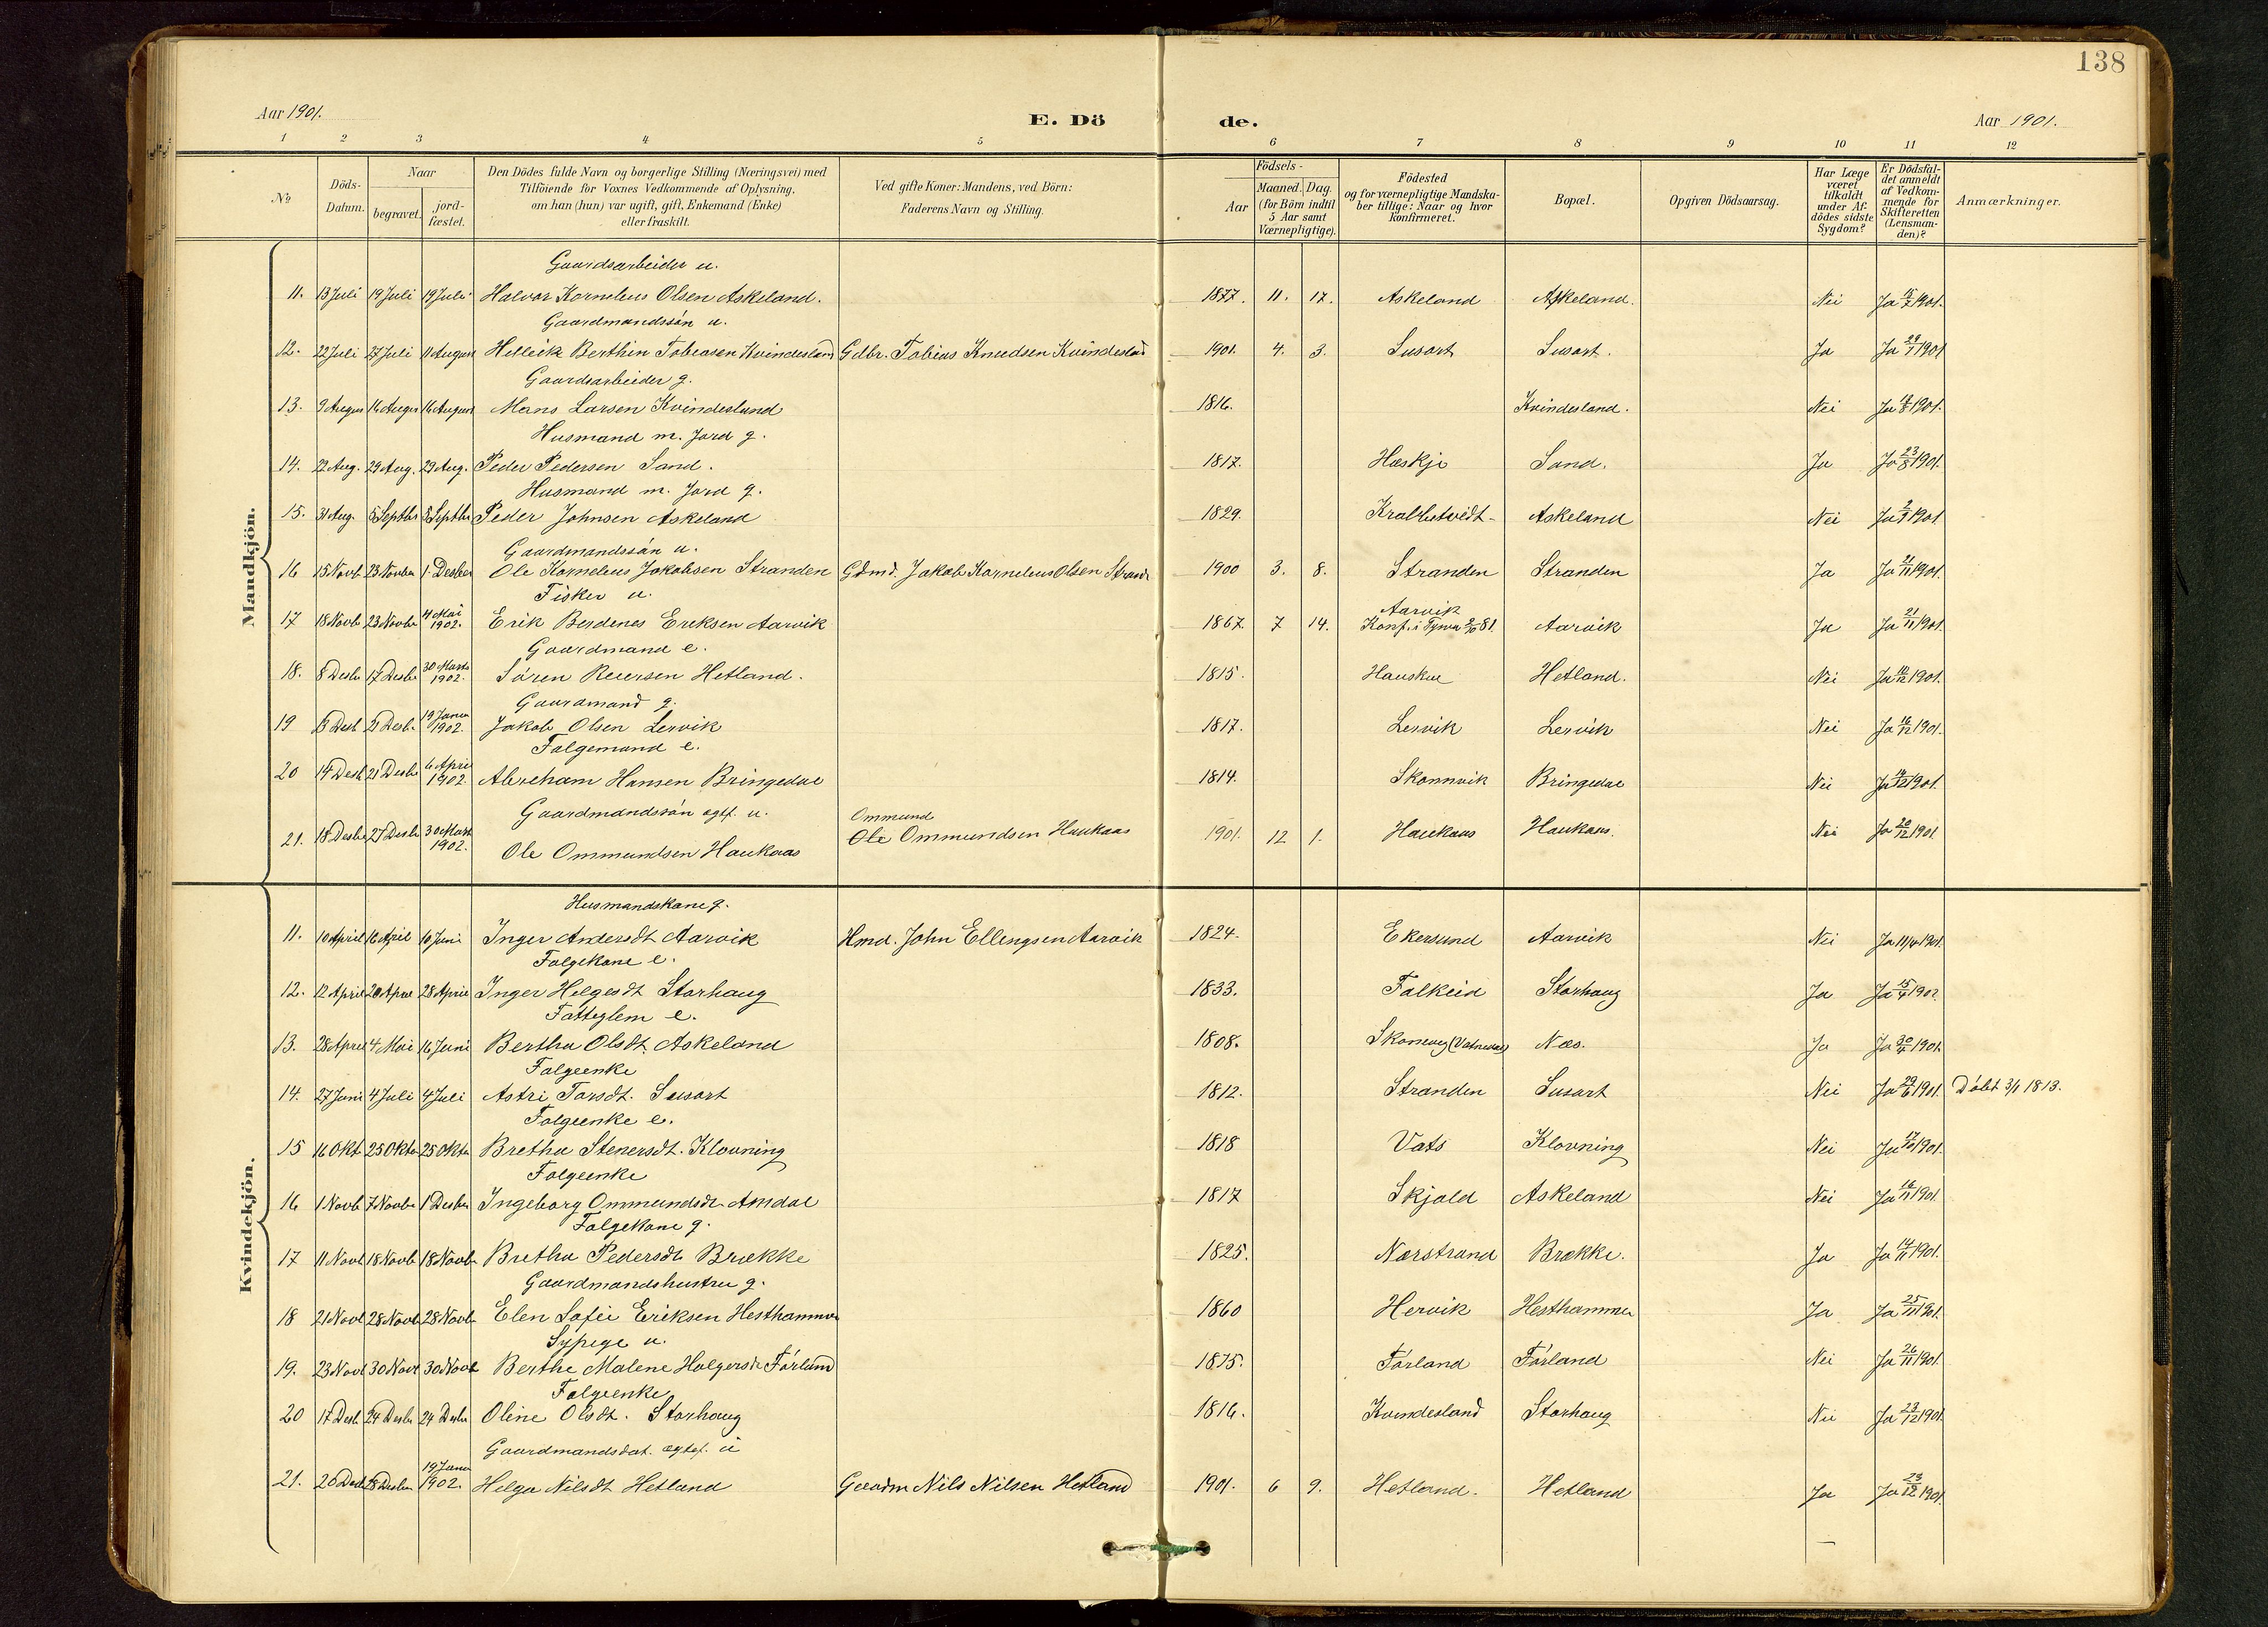 138
Aar 1901. E. Dö de. Aar 1901.
1 2 3 4 5 6 7 8 9 10 11 12
No Döds-Datum. Naar begravet. jord-fæstet. Den Dödes fulde Navn og borgerlige Stilling (Næringsvei) med Tilföiende for Voxnes Vedkommende af Oplysning, om han (hun) var ugift, gift, Enkemand (Enke) eller fraskilt. Ved gifte Koner: Mandens, ved Börn: Faderens Navn og Stilling. Födsels- Aar Maaned. Dag. (for Börn indtil 5 Aar samt Værnepligtige). Födested og for værnepligtige Mandskaber tillige: Naar og hvor konfirmeret. Bopæl. Opgiven Dödsaarsag. Har Læge været tilkaldt under Afdödes sidste Sygdom? Er Dödsfaldet anmeldt af Vedkommende for Skifteretten (Lensmanden)? Anmærkninger.
Mandkjön.
Gaardsarbeider u.
11. 13 Juli 19 Juli 19 Juli Halvor Kornelius Olsen Askeland. 1877. 11. 17. Askeland Askeland. Nei Ja 15/7 1901.
Gaardmandssön u.
12. 22 Juli 27 Juli 11 August Helleik Berthin Tobiasen Kvindesland Gdbr. Tobias Knudsen Kvindesland 1901. 4. 3. Susort Susort. Ja Ja 1901
Gaardsarbeider g.
13. 9 August 16 August 16 August Mons Larsen Kvindesland 1816. Kvindesland. Nei Ja 1901.
Husmand m. Jord g.
14. 22 Aug. 29 Aug. 29 Aug. Peder Pedersen Sand. 1817. Hæskje Sand. Ja Ja 23/8 1901.
Husmand m. Jord g.
15. 31 Aug. 5 Septbr 5 Septbr Peder Johnsen Askeland 1829. Krabbetvedt Askeland Nei Ja 2/9 1901
Gaardmandssön u.
16 15 Novb 23 Novbr 1. Desber Ole Kornelius Jakobsen Stranden Gdmd. Jakob Kornelius Olsen Strand 1900 3. 8. Stranden Stranden Ja Ja 21/11 1901.
Fisker u.
17 18 Novb 23 Novbr 4 Mai 1902. Erik Berdenes Eriksen Aarvik 1867. 7 14. Aarvik Konf. i Tysvær 2/10 81. Aarvik Ja Ja 21/11 1901.
Gaardmand e.
18. 8 Desbr 17 Desbr 30 Marts 1902. Sören Reiersen Hetland. 1815. Hauskue Hetland. Nei Ja 1901.
Gaardmand g.
19 13 Desb 21 Desbr 19 Januar 1902. Jakob Olsen Lervik 1817. Lervik Lervik Nei Ja 16/12 1901.
Folgemand e.
20 14 Desb 21 Desbr 6 April 1902. Abreham Hansen Bringedal 1814. Skonnvik Bringedal Nei Ja 1901.
Gaardmandssön egtf. u.
21. 18 Desbr 27 Desbr 30 Marts 1902. Ole Ommundsen Haukaas Ommund Ole Ommundsen Haukaas 1901. 12 1. Haukaas Haukaas. Nei Ja 20/12 1901
Kvindekjön.
Husmandskone g.
11. 10 April 16 April 10 Juni Inger Andersdt Aarvik Hmd. John Ellingsen Aarvik 1824. Ekersund Aarvik Nei Ja 11/4 1901.
Folgekone e.
12. 12 April 20 April 28 April Inger Helgesdt Storhaug 1833. Falkeid Storhaug Ja Ja 15/4 1902.
Fattiglem e.
13. 28 April 4 Mai 16 Juni Bertha Olsdt. Askeland 1808. Næs. Ja Ja 30/4 1901.
Folgeenke
14. 27 Juni 4 Juli 4 Juli Astri Torsdt. Susort 1812. Stranden Susort Nei Ja 29/6 1901. Döbt 3/1 1813.
Folgeenke e.
15 16 Okt 25 Oktr 25 Oktr Bretha Stenersdt. Klovning 1818 Vats Klovning Nei Ja 17/10 1901.
Folgeenke
16 1 Novb 7 Novbr 1 Desber Ingeborg Ommundsdt. Amdal 1817 Skjold Askeland Nei Ja 1901.
Folgekone g.
17 11 Novb 18 Novb 18 Novbr Bretha Pedersdt Brække 1825. Nærstrand Brække. Ja Ja 14/11 1901.
Gaardmandshustru g.
18 21 Novb 28 Novb 28 Novbr Elen Sofie Eriksen Hesthammer 1860 Hervik Hesthammer Ja Ja 25/11 1901.
Sypige u.
19. 23 Novb 30 Novb 30 Novb Berthe Malene Holgersdt Förland 1875. Förland Förland Nei Ja 26/11 1901.
Folgeenke
20 17 Desb 24 Desbr 24 Desbr Oline Olsdt. Storhaug 1816. Kvindesland Storhaug Nei Ja 23/12 1901
Gaardmandsdat. egtef. u
21. 20 Desb 28 Desbr 19 Januar 1902. Helga Nilsdt Hetland Gaardm Nils Nilsen Hetland 1901. 6 9. Hetland. Hetland Ja Ja 23/12 1901.